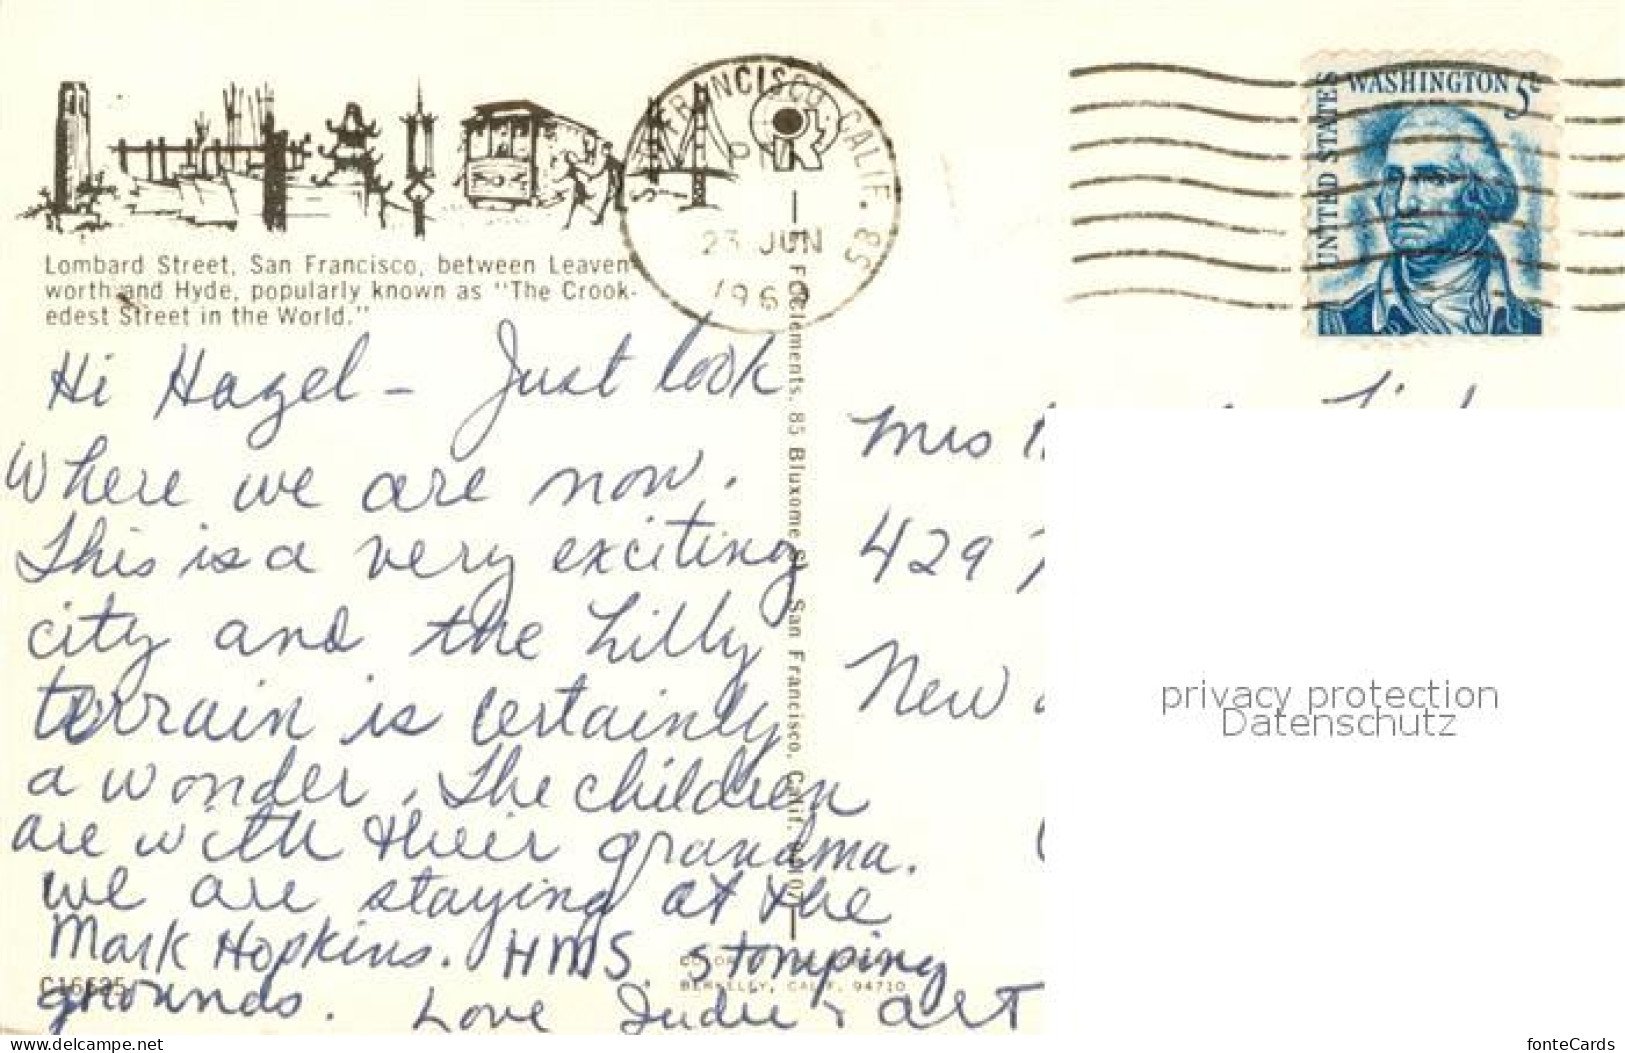 SAN FRANCISCO, CALIF. SB
PM
23 JUN
1969
UNITED STATES
WASHINGTON 5¢
Lombard Street, San Francisco, between Leaven-
worth and Hyde, popularly known as "The Crook-
edest Street in the World."
Hi Hazel - Just look
where we are now.
This is a very exciting
city and the hilly
terrain is certainly
a wonder. The children
are with their grandma.
We are staying at the
Mark Hopkins. HMS stomping
grounds. Love Judie & Art
C16525
F. Clements, 85 Bluxome St., San Francisco, Calif. 94107
BERKELEY, CALIF. 94710
Mrs
429
New
privacy protection
Datenschutz
www.delcampe.net
fonteCards